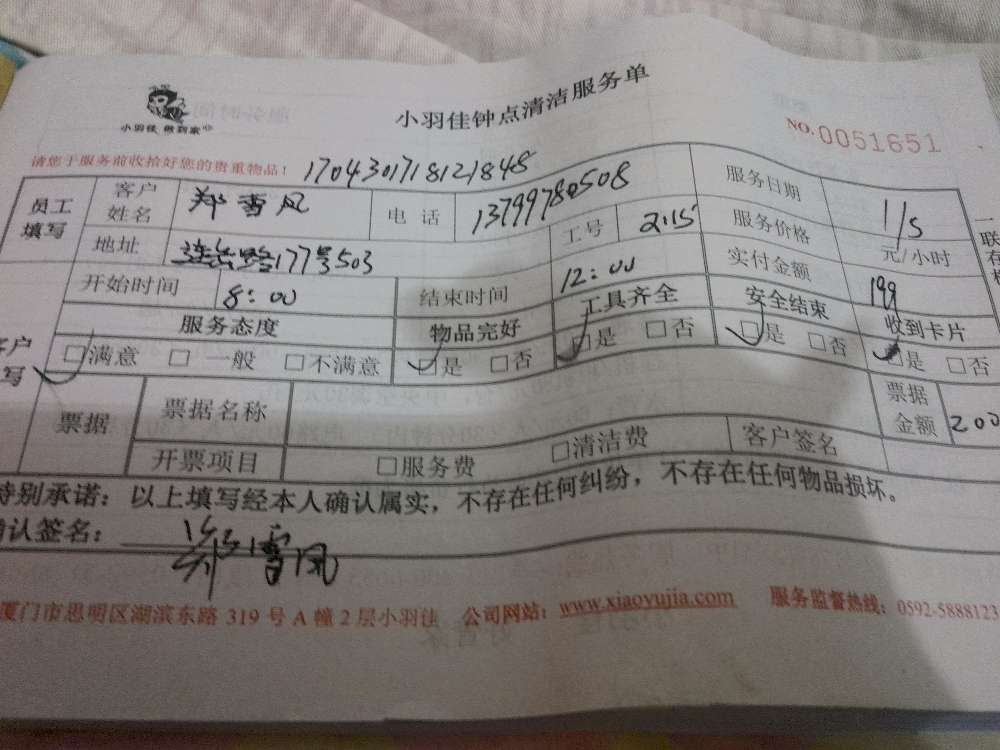 小羽佳 做到家
小羽佳钟点清洁服务单
NO.0051651
请您于服务前收拾好您的贵重物品! 170430171812184​8
员工填写 客户姓名 郑雪风 电话 13799780508 服务日期 1/5
地址 莲岳路177号503 工号 2115 服务价格 元/小时
开始时间 8:00 结束时间 12:00 实付金额 199
服务态度 物品完好 工具齐全 安全结束 收到卡片
☑满意 □一般 □不满意 ☑是 □否 ☑是 □否 ☑是 □否 ☑是 □否
票据 票据名称 票据金额 200
开票项目 □服务费 □清洁费 客户签名
特别承诺:以上填写经本人确认属实,不存在任何纠纷,不存在任何物品损坏。
确认签名: 郑雪凤
厦门市思明区湖滨东路 319 号 A 幢 2 层小羽佳 公司网站: www.xiaoyujia.com 服务监督热线: 0592-5888123